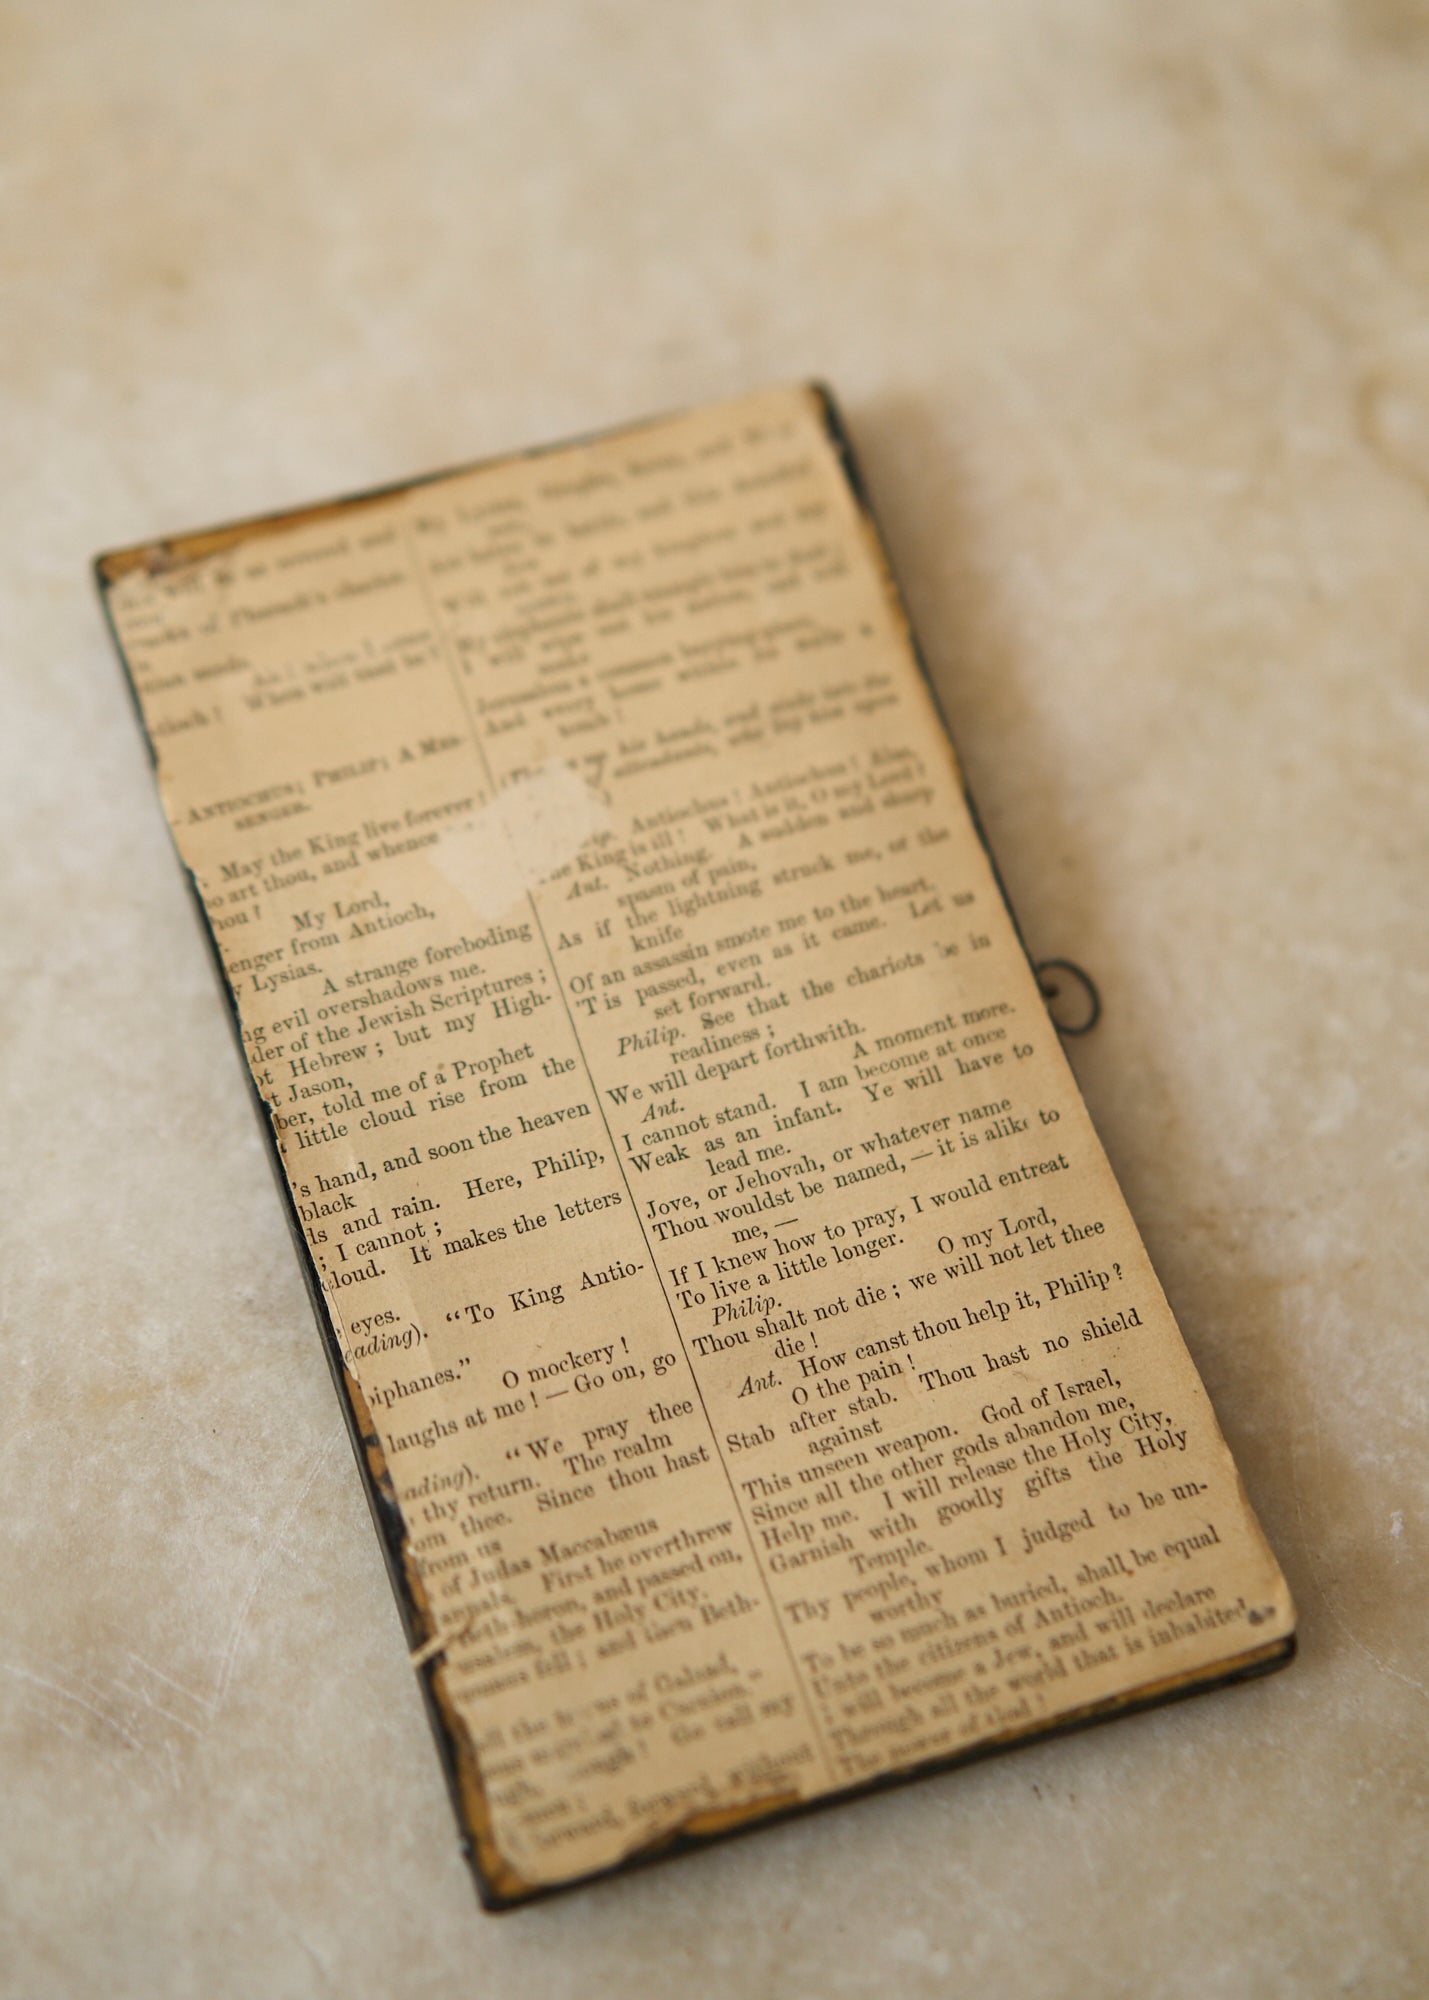 as
and
of Pharaoh's chariot-
Ah! when I come
When will that be?
ANTIOCHUS; PHILIP; A MES-
SENGER.
May the King live forever!
art thou, and whence
hou?
My Lord,
enger from Antioch,
y Lysias.
A strange foreboding
ng evil overshadows me.
der of the Jewish Scriptures;
ot Hebrew; but my High-
t Jason,
ber, told me of a Prophet
little cloud rise from the
's hand, and soon the heaven
black
ds and rain. Here, Philip,
; I cannot;
cloud. It makes the letters
eyes.
eading). "To King Antio-
piphanes."
O mockery!
laughs at me! — Go on, go
ading). "We pray thee
thy return. The realm
om thee. Since thou hast
from us
of Judas Maccabæus
annals. First he overthrew
Beth-horon, and passed on,
usalem, the Holy City.
maus fell; and then Beth-
all the of Galaad,
to Carnion."
ough! Go call my
forward, forward, without
My Lysias, and
in battle, and the
Will of my kingdom and
My elephants shall trample him to
I will wipe out his nation, and will
make
Jerusalem a common burying-place,
And every home within its walls a
tomb!
his hands, and sinks into the
attendants, who lay him upon
Antiochus! Antiochus! Alas,
he King is ill! What is it, O my Lord?
Ant. Nothing. A sudden and sharp
spasm of pain,
As if the lightning struck me, or the
knife
Of an assassin smote me to the heart.
'T is passed, even as it came. Let us
set forward.
Philip. See that the chariots be in
readiness;
We will depart forthwith.
Ant. A moment more.
I cannot stand. I am become at once
Weak as an infant. Ye will have to
lead me.
Jove, or Jehovah, or whatever name
Thou wouldst be named, — it is alike to
me, —
If I knew how to pray, I would entreat
To live a little longer.
Philip. O my Lord,
Thou shalt not die; we will not let thee
die!
Ant. How canst thou help it, Philip?
O the pain!
Stab after stab. Thou hast no shield
against
This unseen weapon. God of Israel,
Since all the other gods abandon me,
Help me. I will release the Holy City,
Garnish with goodly gifts the Holy
Temple.
Thy people, whom I judged to be un-
worthy
To be so much as buried, shall be equal
Unto the citizens of Antioch.
I will become a Jew, and will declare
Through all the world that is inhabited
The power of God!